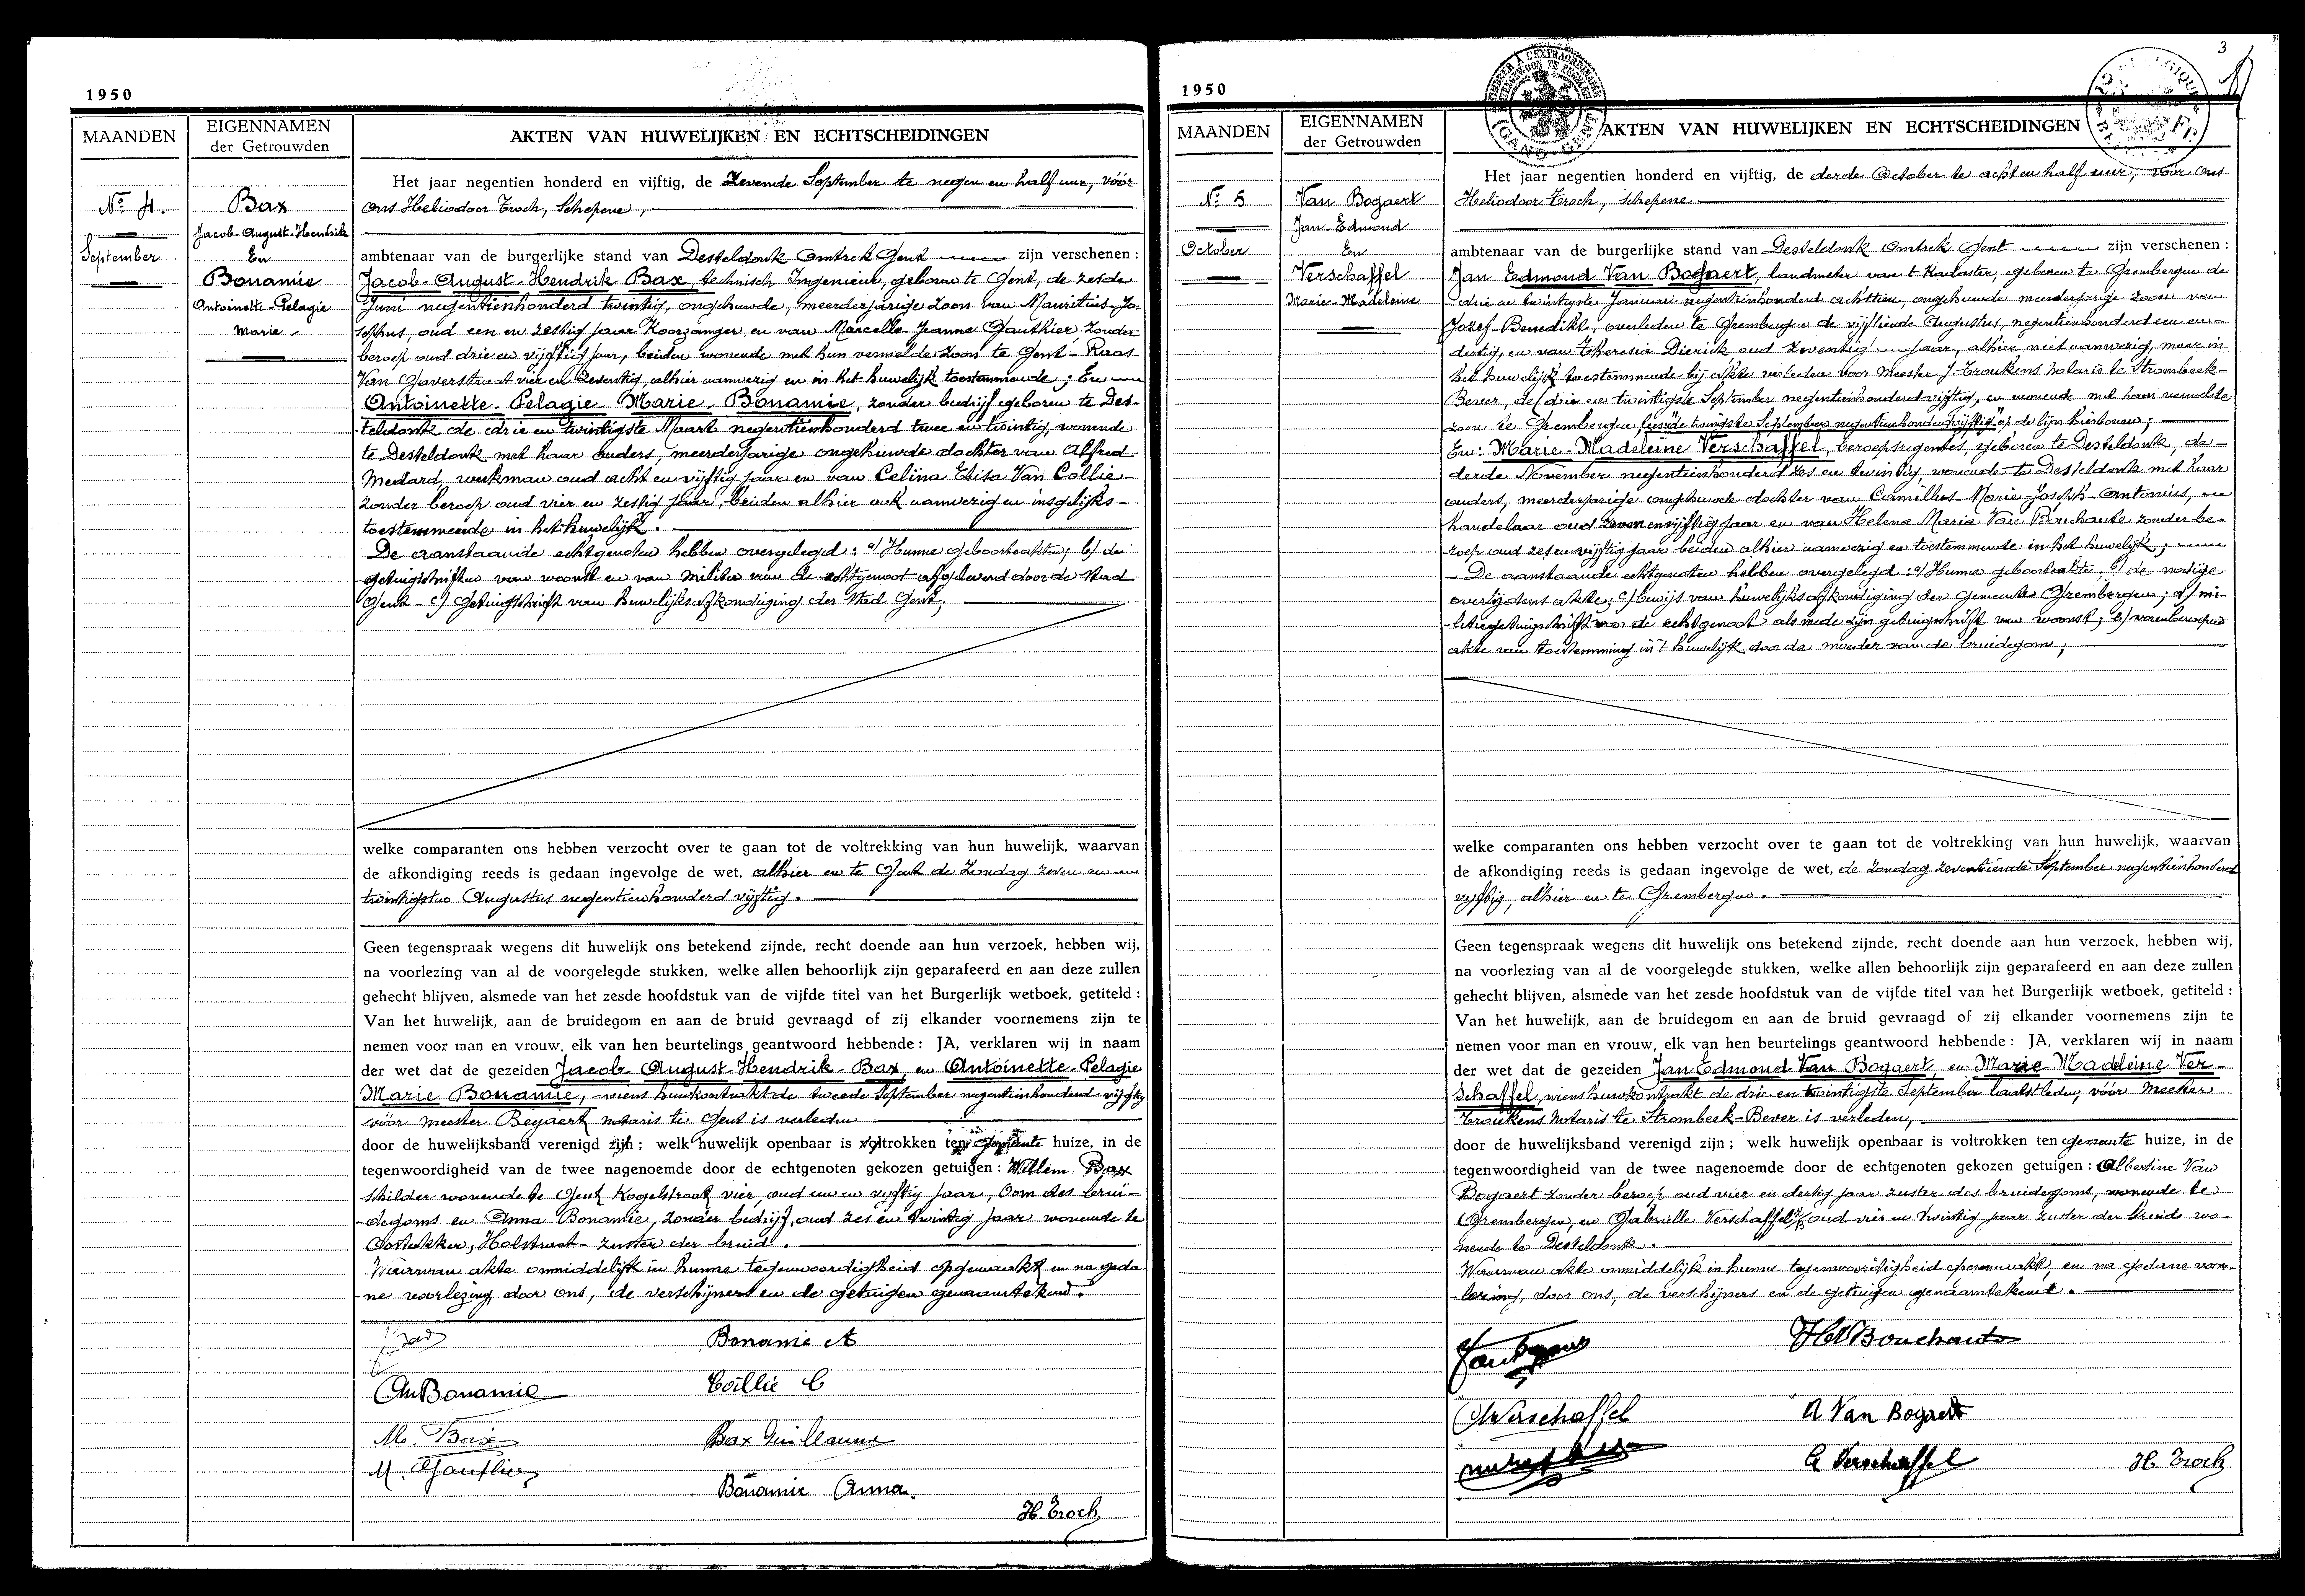 1950
MAANDEN
EIGENNAMEN
der Getrouwden
AKTEN VAN HUWELIJKEN EN ECHTSCHEIDINGEN
No 4.
September
Bax
Jacob-August-Hendrik
En
Bonamie
Antoinette-Pelagie
Marie
Het jaar negentien honderd en vijftig, de zevende September te negen en half uur, vóór
ons Heliodoor Troch, Schepene,
ambtenaar van de burgerlijke stand van Desteldonk Omtrek Gent zijn verschenen :
Jacob-August-Hendrik Bax, technisch Ingenieur, geboren te Gent, de zesde
Juni negentienhonderd twintig, ongehuwde, meerderjarige zoon van Mauritius-Jo-
sephus, oud een en zestig jaar Koorzanger en van Marcelle-Jeanne Gauthier, zonder
beroep oud drie en vijftig jaar, beiden wonende met hun vermelde zoon te Gent - Raas-
Van Gaverstraat vier en zeventig, alhier aanwezig en in het huwelijk toestemmende ; En
Antoinette-Pelagie-Marie-Bonamie, zonder bedrijf geboren te Des-
teldonk de drie en twintigste Maart negentienhonderd twee en twintig, wonende
te Desteldonk met haar ouders, meerderjarige ongehuwde dochter van Alfred
Medard, werkman oud acht en vijftig jaar en van Celina Elisa Van Collie-
zonder beroep oud vier en zestig jaar, beiden alhier ook aanwezig en insgelijks-
toestemmende in het huwelijk.
De aanstaande echtgenoten hebben overgelegd : a/ Hunne geboorteakten; b/ de
getuigschriften van woonst en van militie van de echtgenoot afgeleverd door de Stad
Gent - c/ Getuigschrift van huwelijksafkondiging der Stad Gent,
welke comparanten ons hebben verzocht over te gaan tot de voltrekking van hun huwelijk, waarvan
de afkondiging reeds is gedaan ingevolge de wet, alhier en te Gent de Zondag zeven en
twintigsten Augustus negentienhonderd vijftig.
Geen tegenspraak wegens dit huwelijk ons betekend zijnde, recht doende aan hun verzoek, hebben wij,
na voorlezing van al de voorgelegde stukken, welke allen behoorlijk zijn geparafeerd en aan deze zullen
gehecht blijven, alsmede van het zesde hoofdstuk van de vijfde titel van het Burgerlijk wetboek, getiteld :
Van het huwelijk, aan de bruidegom en aan de bruid gevraagd of zij elkander voornemens zijn te
nemen voor man en vrouw, elk van hen beurtelings geantwoord hebbende : JA, verklaren wij in naam
der wet dat de gezeiden Jacob-August-Hendrik-Bax, en Antoinette-Pelagie
Marie Bonamie, wiens huwkontrakt de tweede September negentienhonderd vijftig
vóór meester Beyaert notaris te Gent is verleden
door de huwelijksband verenigd zijn ; welk huwelijk openbaar is voltrokken ten Gemeente huize, in de
tegenwoordigheid van de twee nagenoemde door de echtgenoten gekozen getuigen : Willem Bax
schilder wonende te Gent Kogelstraat vier, oud een en vijftig jaar, Oom des brui-
degoms en Anna Bonamie, zonder bedrijf, oud zes en twintig jaar wonende te
Oostakker, Holstraat - zuster der bruid.
Waarvan akte onmiddelijk in hunne tegenwoordigheid opgemaakt en na geda
ne voorlezing, door ons, de verschijners en de getuigen genaamtekend.
Bonamie A
AnBonamie
Collie C
M. Bax
Bax Guillaume
M. Gauthier
Bonamie Anna.
H. Troch
3
1950
MAANDEN
EIGENNAMEN
der Getrouwden
AKTEN VAN HUWELIJKEN EN ECHTSCHEIDINGEN
No 5
October
Van Bogaert
Jan-Edmond
En
Verschaffel
Marie-Madeleine
Het jaar negentien honderd en vijftig, de derde October te acht en half uur, voor ons
Heliodoor Troch, Schepene
ambtenaar van de burgerlijke stand van Desteldonk Omtrek Gent zijn verschenen :
Jan Edmond Van Bogaert, landmeter van 't Kadaster, geboren te Grembergen de
drie en twintigste Januari negentienhonderd achttien, ongehuwde meerderjarige zoon van
Jozef-Benedikt, overleden te Grembergen de vijftiende Augustus, negentienhonderd een en
dertig, en van Theresia Dierick oud zeventig jaar, alhier niet aanwezig, maar in
het huwelijk toestemmende bij akte verleden voor Meester J. Troukens Notaris te Strombeek-
Bever, de drie en twintigste September negentienhonderd vijftig, en wonende met haar vermelde
zoon te Grembergen, twintigste September negentienhonderd vijftig" op de lijn hierboven ;
En : Marie-Madeleine Verschaffel, beroepsregentes, geboren te Desteldonk, de
derde November negentienhonderd zes en twintig, wonende te Desteldonk met haar
ouders, meerderjarige ongehuwde dochter van Camillus-Marie-Joseph-Antonius,
handelaar oud zeven en vijftig jaar en van Helena Maria Van Bouchaute zonder be-
roep oud zes en vijftig jaar beiden alhier aanwezig en toestemmende in het huwelijk ;
- De aanstaande echtgenoten hebben overgelegd : a/ Hunne geboorteakte, b/ de nodige
overlijdens akte; c/ bewijs van huwelijksafkondiging der Gemeente Grembergen; d/ mi-
litiegetuigschrift voor de echtgenoot alsmede zijn getuigschrift van woonst; e/ vorenberoepen
akte van toestemming in 't huwelijk door de moeder van de bruidegom ;
welke comparanten ons hebben verzocht over te gaan tot de voltrekking van hun huwelijk, waarvan
de afkondiging reeds is gedaan ingevolge de wet, de zondag zeventiende September negentienhonderd
vijftig, alhier en te Grembergen.
Geen tegenspraak wegens dit huwelijk ons betekend zijnde, recht doende aan hun verzoek, hebben wij,
na voorlezing van al de voorgelegde stukken, welke allen behoorlijk zijn geparafeerd en aan deze zullen
gehecht blijven, alsmede van het zesde hoofdstuk van de vijfde titel van het Burgerlijk wetboek, getiteld :
Van het huwelijk, aan de bruidegom en aan de bruid gevraagd of zij elkander voornemens zijn te
nemen voor man en vrouw, elk van hen beurtelings geantwoord hebbende : JA, verklaren wij in naam
der wet dat de gezeiden Jan Edmond Van Bogaert, en Marie Madeleine Ver-
schaffel, wiens huwkontrakt de drie en twintigste September laatstleden, vóór Meester
Troukens Notaris te Strombeek-Bever is verleden,
door de huwelijksband verenigd zijn ; welk huwelijk openbaar is voltrokken ten gemeente huize, in de
tegenwoordigheid van de twee nagenoemde door de echtgenoten gekozen getuigen : Albertine Van
Bogaert zonder beroep oud vier en dertig jaar zuster des bruidegoms, wonende te
Grembergen, en Gabrielle Verschaffel z/b oud vier en twintig jaar zuster der bruid wo-
nende te Desteldonk.
Waarvan akte onmiddelijk in hunne tegenwoordigheid opgemaakt, en na gedane voor-
lezing, door ons, de verschijners en de getuigen genaamtekend.
HVBouchaute
Verschaffel
A Van Bogaert
G Verschaffel
H. Troch